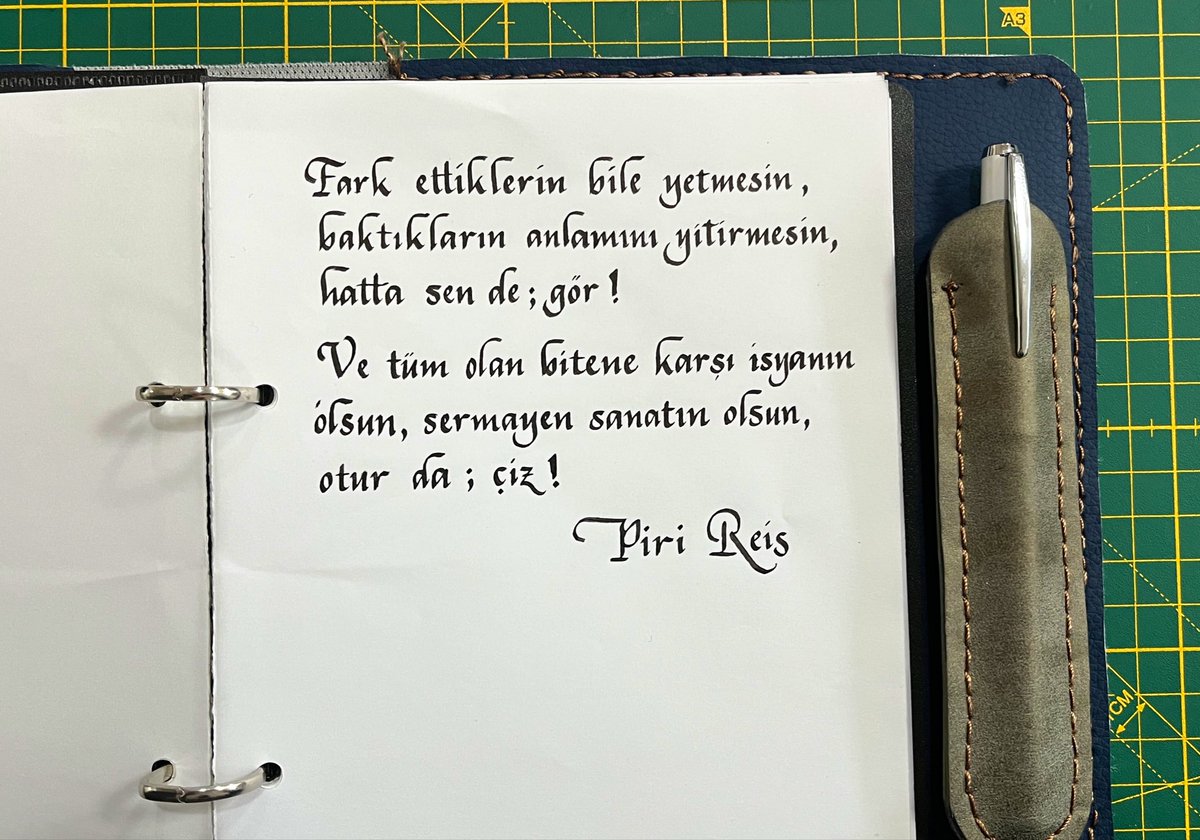 A3
Fark ettiklerin bile yetmesin,
baktıkların anlamını yitirmesin,
hatta sen de; gör!
Ve tüm olan bitene karşı isyanın
olsun, sermayen sanatın olsun,
otur da; çiz!
Piri Reis
1CM